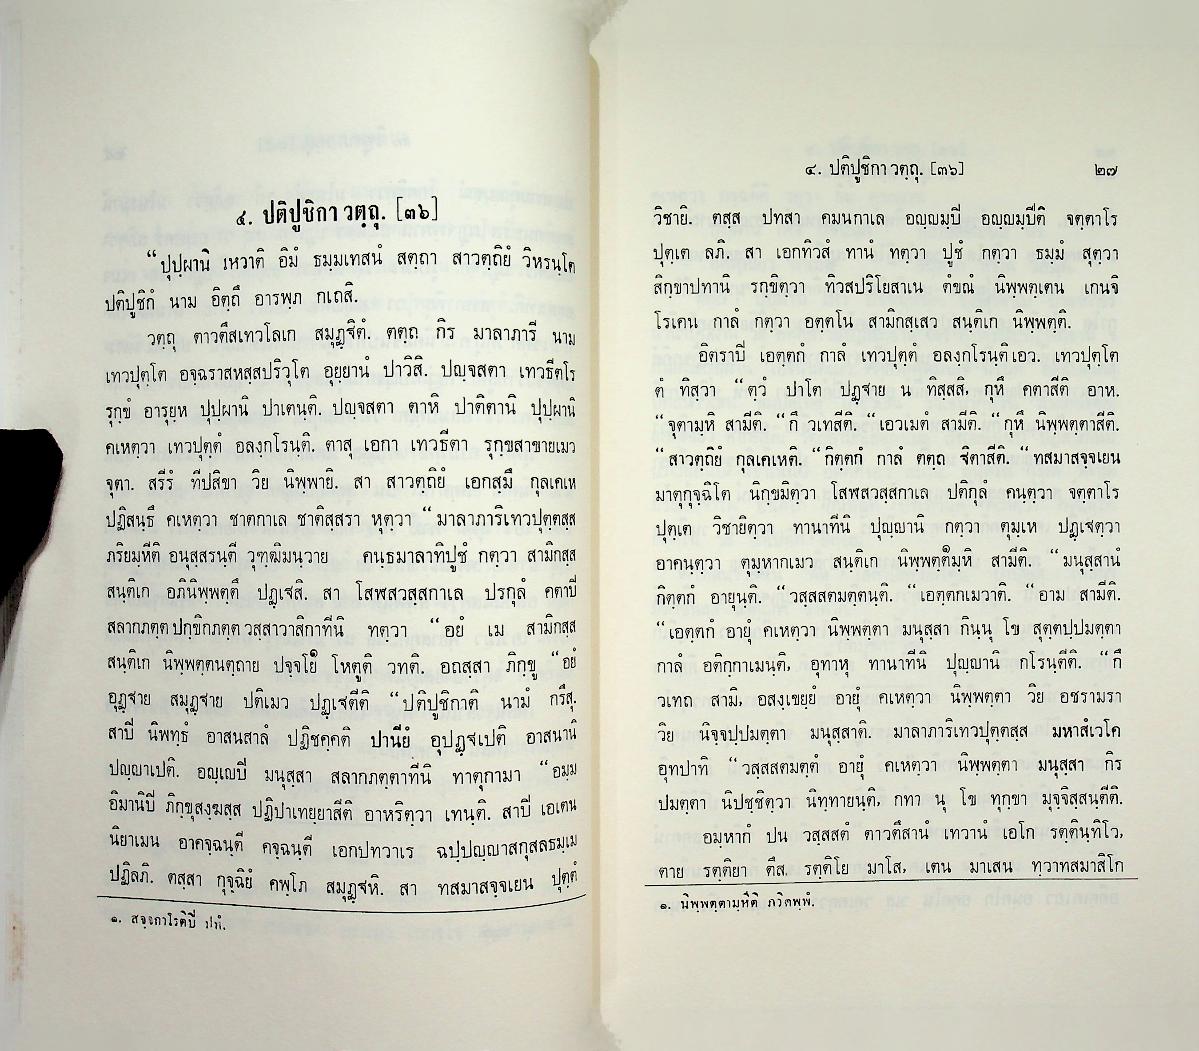 ๔. ปติปูชิกา วตฺถุ. [๓๖]
“ปุปฺผานิ เหวาติ อิมํ ธมฺมเทสนํ สตฺถา สาวตฺถิยํ วิหรนฺโต
ปติปูชิกํ นาม อิตฺถึ อารพฺภ กเถสิ.
วตฺถุ ตาวตึสเทวโลเก สมุฏฺฐิตํ. ตตฺถ กิร มาลาภารี นาม
เทวปุตฺโต อจฺฉราสหสฺสปริวุโต อุยฺยานํ ปาวิสิ. ปญฺจสตา เทวธีตโร
รุกฺขํ อารุยฺห ปุปฺผานิ ปาเตนฺติ. ปญฺจสตา ตาหิ ปาติตานิ ปุปฺผานิ
คเหตฺวา เทวปุตฺตํ อลงฺกโรนฺติ. ตาสุ เอกา เทวธีตา รุกฺขสาขายเมว
จุตา. สรีรํ ทีปสิขา วิย นิพฺพายิ. สา สาวตฺถิยํ เอกสฺมึ กุลเคเห
ปฏิสนฺธึ คเหตฺวา ชาตกาเล ชาติสฺสรา หุตฺวา “มาลาภาริเทวปุตฺตสฺส
ภริยมฺหีติ อนุสฺสรนฺตี วุฑฺฒิมนฺวาย คนฺธมาลาทิปูชํ กตฺวา สามิกสฺส
สนฺติเก อภินิพฺพตฺตึ ปฏฺเฐสิ. สา โสฬสวสฺสกาเล ปรกุลํ คตาปี
สลากภตฺต ปกฺขิกภตฺต วสฺสาวาสิกาทีนิ ทตฺวา “อยํ เม สามิกสฺส
สนฺติเก นิพฺพตฺตนตฺถาย ปจฺจโย๑ โหตูติ วทติ. อถสฺสา ภิกฺขู “อยํ
อุฏฺฐาย สมุฏฺฐาย ปติเมว ปฏฺเฐตีติ “ปติปูชิกาติ นามํ กรึสุ.
สาปี นิพทฺธํ อาสนสาลํ ปฏิชคฺคติ ปานียํ อุปฏฺฐเปติ อาสนานิ
ปญฺญาเปติ. อญฺเญปี มนุสฺสา สลากภตฺตาทีนิ ทาตุกามา “อมฺม
อิมานิปี ภิกฺขุสงฺฆสฺส ปฏิปาเทยฺยาสีติ อาหริตฺวา เทนฺติ. สาปี เอเตน
นิยาเมน อาคจฺฉนฺตี คจฺฉนฺตี เอกปทวาเร ฉปฺปญฺญาสกุสลธมฺเม
ปฏิลภิ. ตสฺสา กุจฺฉิยํ คพฺโภ สมุฏฺฐหิ. สา ทสมาสจฺจเยน ปุตฺตํ
๑. สจฺจกาโรติปี ปาฐํ.
๔. ปติปูชิกา วตฺถุ. [๓๖] ๒๗
วิชายิ. ตสฺส ปทสา คมนกาเล อญฺญมฺปี อญฺญมฺปีติ จตฺตาโร
ปุตฺเต ลภิ. สา เอกทิวสํ ทานํ ทตฺวา ปูชํ กตฺวา ธมฺมํ สุตฺวา
สิกฺขาปทานิ รกฺขิตฺวา ทิวสปริโยสาเน ตํขณํ นิพฺพตฺเตน เกนจิ
โรเคน กาลํ กตฺวา อตฺตโน สามิกสฺเสว สนฺติเก นิพฺพตฺติ.
อิตราปี เอตฺตกํ กาลํ เทวปุตฺตํ อลงฺกโรนฺติเอว. เทวปุตฺโต
ตํ ทิสฺวา “ตฺวํ ปาโต ปฏฺฐาย น ทิสฺสสิ, กุหึ คตาสีติ อาห.
“จุตามฺหิ สามีติ. “กึ วเทสีติ. “เอวเมตํ สามีติ. “กุหึ นิพฺพตฺตาสีติ.
“สาวตฺถิยํ กุลเคเหติ. “กิตฺตกํ กาลํ ตตฺถ ฐิตาสีติ. “ทสมาสจฺจเยน
มาตุกุจฺฉิโต นิกฺขมิตฺวา โสฬสวสฺสกาเล ปติกุลํ คนฺตฺวา จตฺตาโร
ปุตฺเต วิชายิตฺวา ทานาทีนิ ปุญฺญานิ กตฺวา ตุมฺเห ปฏฺเฐตฺวา
อาคนฺตฺวา ตุมฺหากเมว สนฺติเก นิพฺพตฺติ๑มฺหิ สามีติ. “มนุสฺสานํ
กิตฺตกํ อายุนฺติ. “วสฺสสตมตฺตนฺติ. “เอตฺตกเมวาติ. “อาม สามีติ.
“เอตฺตกํ อายุํ คเหตฺวา นิพฺพตฺตา มนุสฺสา กินฺนุ โข สุตฺตปฺปมตฺตา
กาลํ อติกฺกาเมนฺติ, อุทาหุ ทานาทีนิ ปุญฺญานิ กโรนฺตีติ. “กึ
วเทถ สามิ, อสงฺเขยฺยํ อายุํ คเหตฺวา นิพฺพตฺตา วิย อชรามรา
วิย นิจฺจปฺปมตฺตา มนุสฺสาติ. มาลาภาริเทวปุตฺตสฺส มหาสํเวโค
อุทปาทิ “วสฺสสตมตฺตํ อายุํ คเหตฺวา นิพฺพตฺตา มนุสฺสา กิร
ปมตฺตา นิปชฺชิตฺวา นิทฺทายนฺติ, กทา นุ โข ทุกฺขา มุจฺจิสฺสนฺตีติ.
อมฺหากํ ปน วสฺสสตํ ตาวตึสานํ เทวานํ เอโก รตฺตินฺทิโว,
ตาย รตฺติยา ตึส รตฺติโย มาโส, เตน มาเสน ทฺวาทสมาสิโก
๑. นิพฺพตฺตามฺหีติ ภวิตพฺพํ.